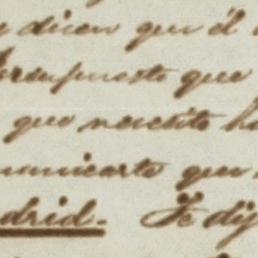 y dicen que él
Presupuesto que
que necesito ha
municarte que
drid. Te dij